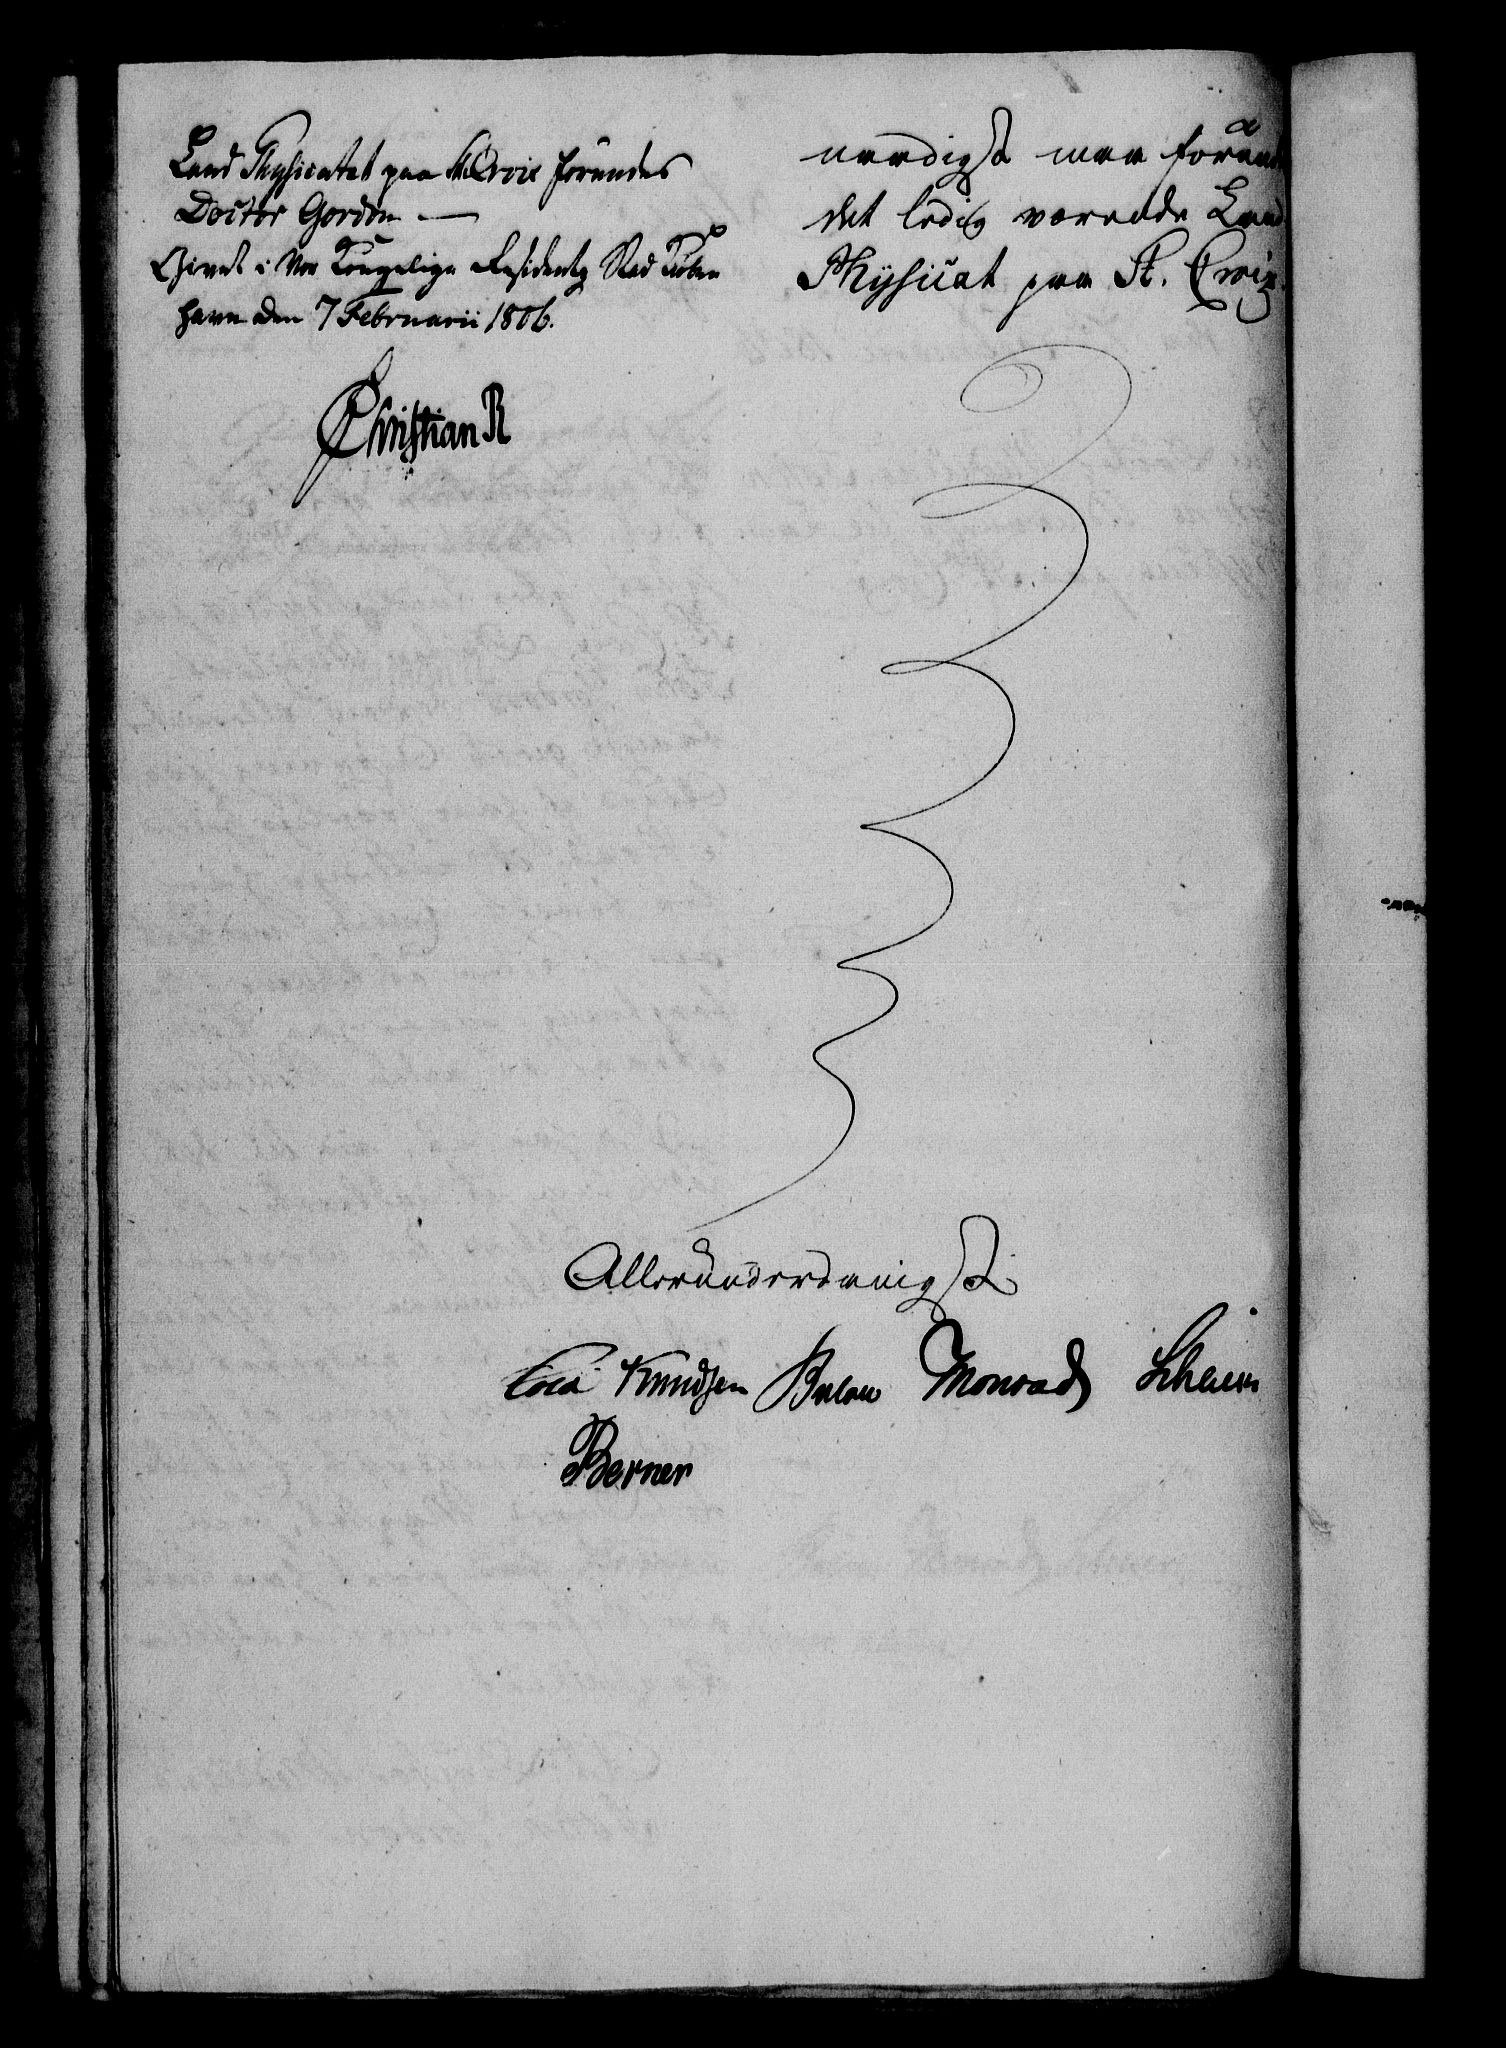 Land Physicatet paa St Croix forundes
Doctor Gordon
Givet i Vor Kongelige Residentz Stad Kiøben
havn den 7 Februarii 1806.
Christian R
naadigst maa forun
det ledig værende Land
Physicat paa St. Croix.
Allerunderdanigst
Knudsen Monrad
Berner